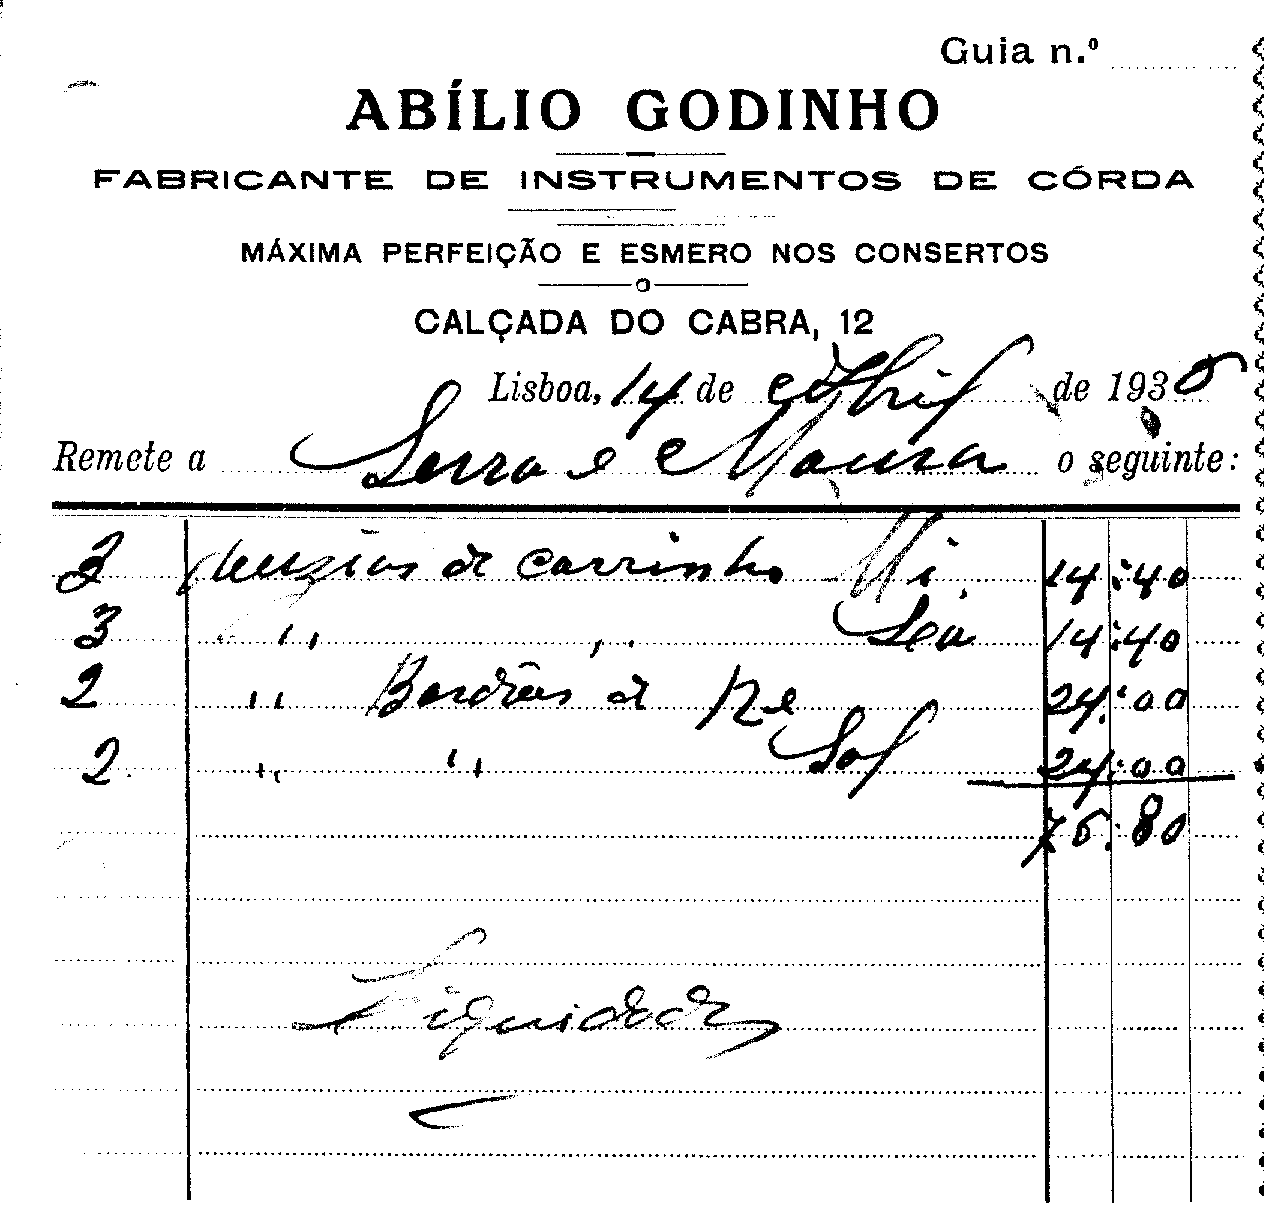 Guia n.º
ABÍLIO GODINHO
FABRICANTE DE INSTRUMENTOS DE CÓRDA
MÁXIMA PERFEIÇÃO E ESMERO NOS CONSERTOS
CALÇADA DO CABRA, 12
Lisboa, 14 de Abril de 193
Remete a Serra e Moura o seguinte:
3 duzias de carrinho Mi 14:40
3 " " 14:40
2 " Bordões de Re 24:00
2 " " Sol 24:00
76:80
Liquidado